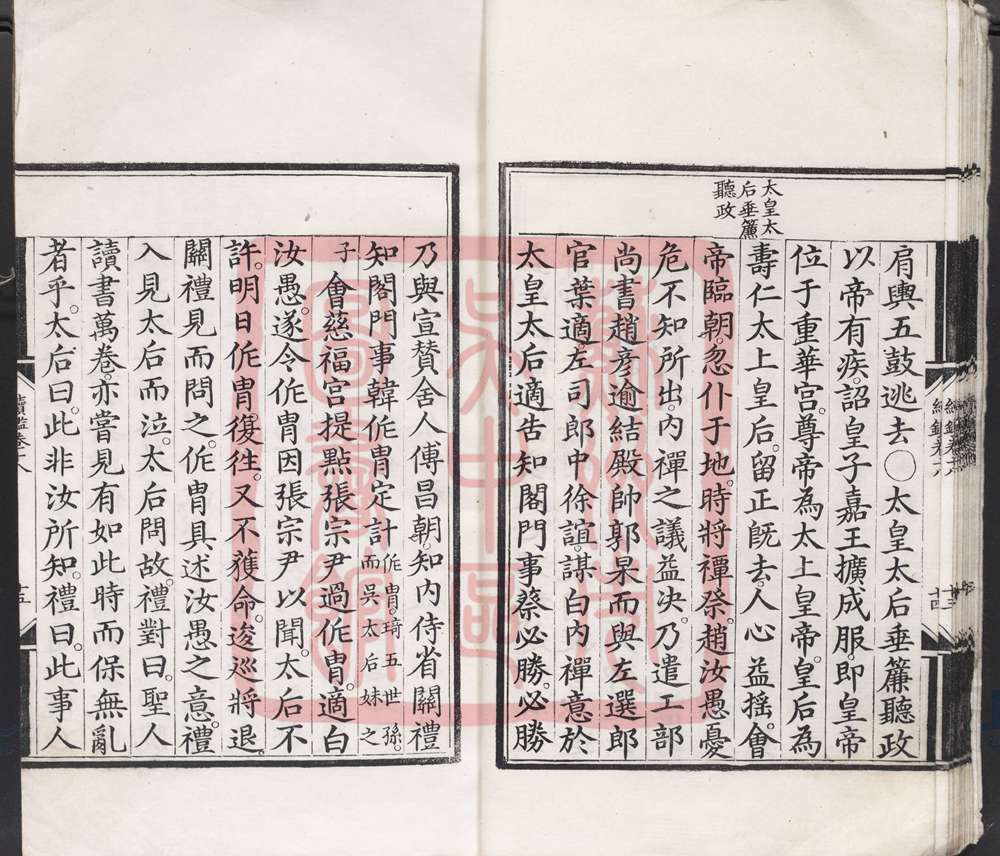 太皇太
后垂簾
聽政
肩輿五鼓逃去〇太皇太后垂簾聽政
以帝有疾。詔皇子嘉王擴成服。即皇帝
位于重華宮。尊帝為太上皇帝。皇后為
壽仁太上皇后。留正既去。人心益搖。會
帝臨朝。忽仆于地。時將禫祭。趙汝愚憂
危不知所出。內禪之議益決。乃遣工部
尚書趙彥逾結殿帥郭杲。而與左選郎
官葉適左司郎中徐誼謀。白內禪意於
太皇太后。適告知閤門事蔡必勝。必勝
乃與宣贊舍人傅昌朝。知內侍省關禮
知閤門事韓侂胄定計侂胄。琦五世孫。
而吳太后妹之
子會慈福宮提點張宗尹過侂胄。適白
汝愚。遂令侂胄因張宗尹以聞。太后不
許。明日侂胄復往。又不獲命。逡巡將退。
關禮見而問之。侂胄具述汝愚之意。禮
入見太后而泣。太后問故。禮對曰。聖人
讀書萬卷。亦嘗見有如此時而保無亂
者乎。太后曰。此非汝所知。禮曰。此事人
續鑑卷十八
十五
十四